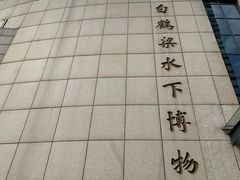 白鶴梁水下博物